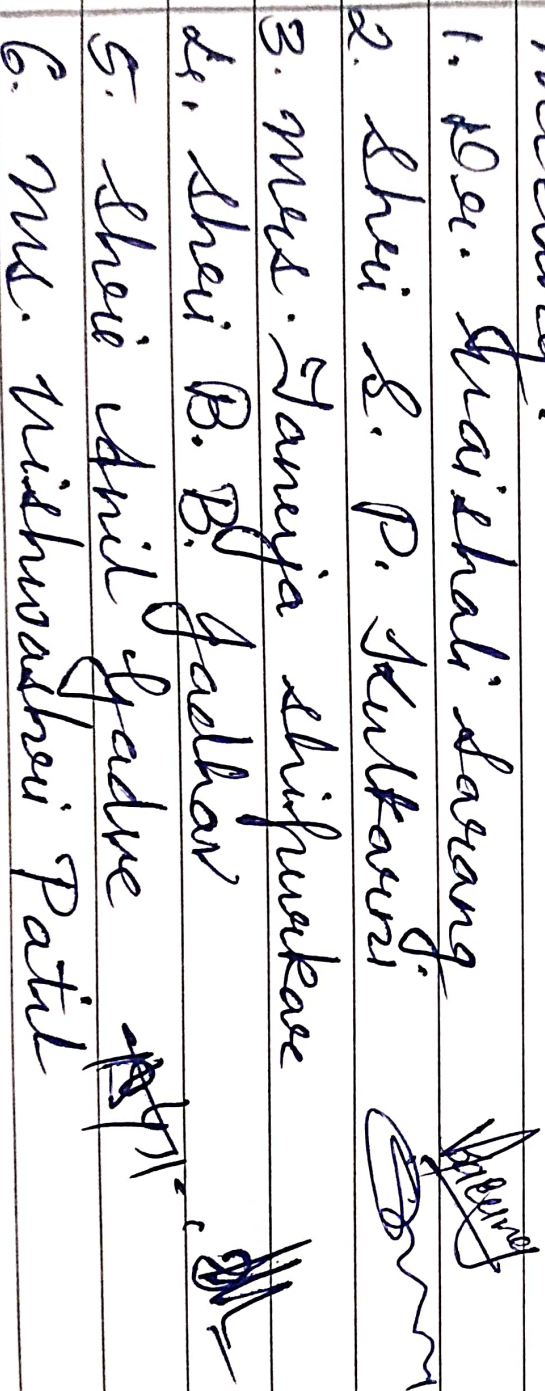 1. Dr. Vaishali Sarang
2. Shri S. P. Kulkarni
3. Mrs. Tanuja Shipurkar
4. Shri B. B. Jadhav
5. Shri Anil Gadre
6. Ms. Vishwashri Patil